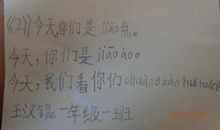 《(2)》今天,你们是jiāo点。
今天,你们是jiāoào。
今天,我们看你们chuàngzào huīhuáng
王汉锟 一年级一班